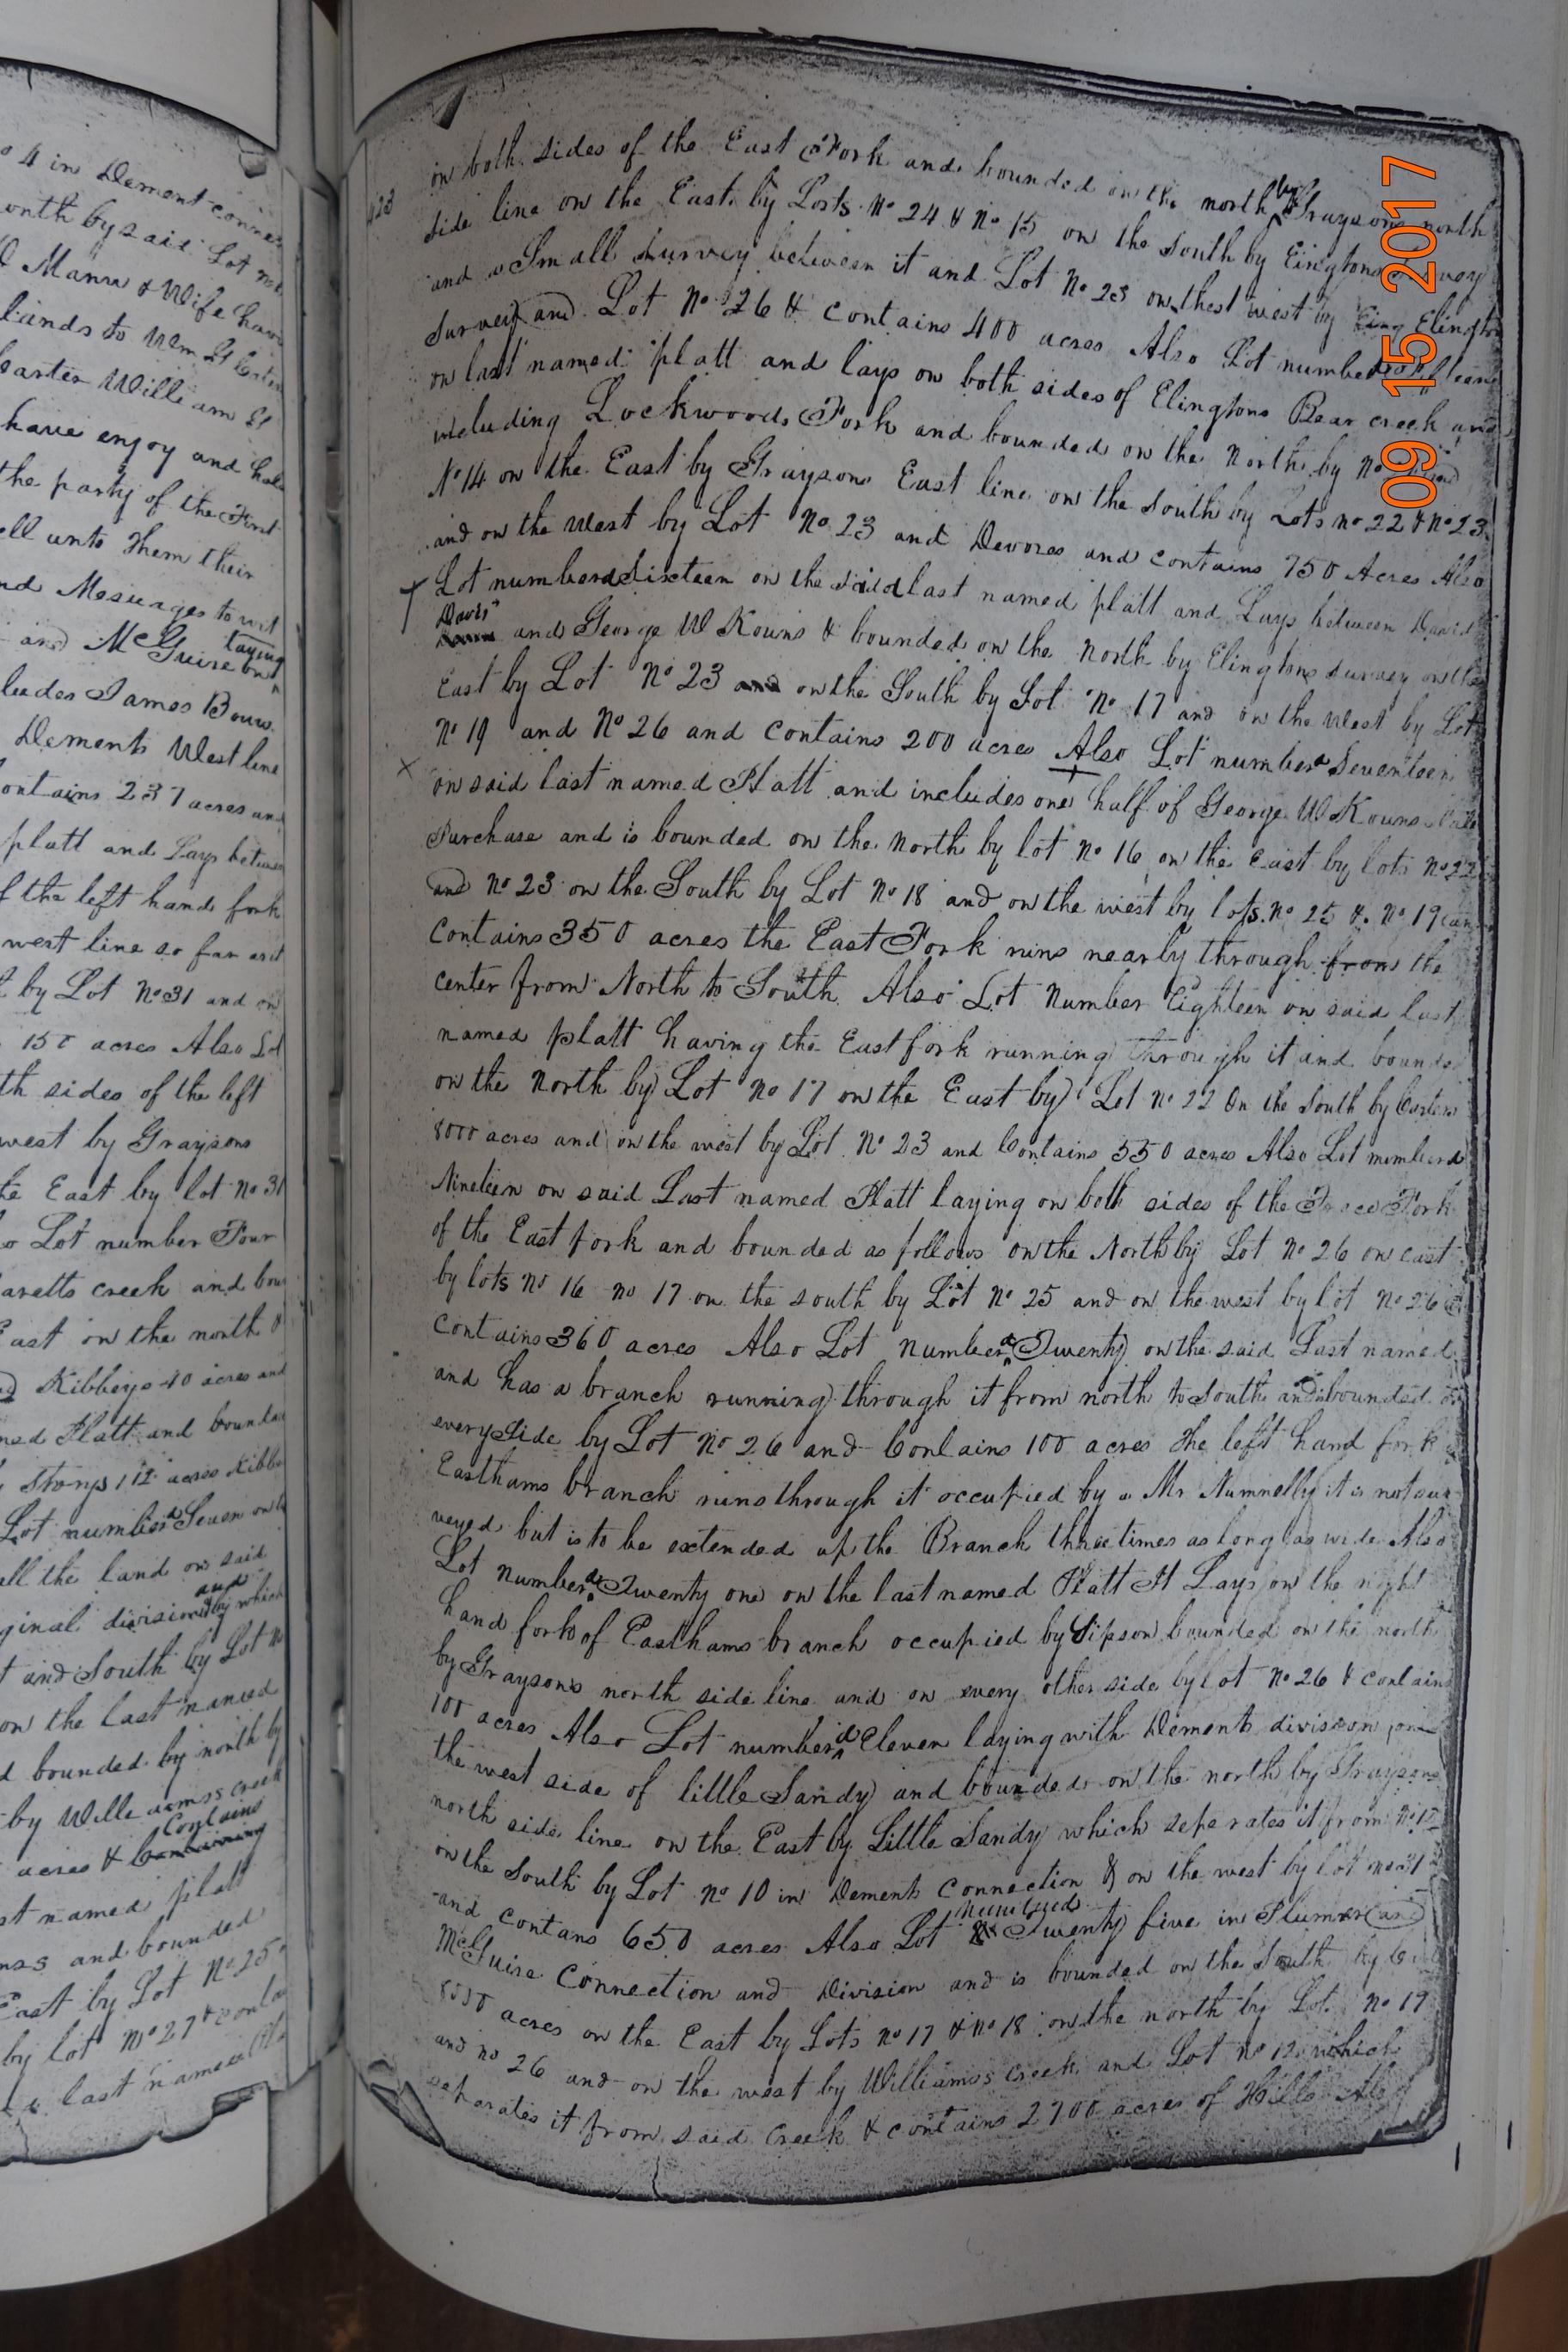 o 4 in Dement connec
outh by said Lot no
Mann & Wife have
lands to Wm
Carter William
have enjoy and hold
the party of the First
ell unto them their
nd Mesuages to wit
and McGuire laying on
ludes James Bow
Dements West line
ontains 237 acres and
platt and Lays between
f the left hand fork
west line so far as it
t by Lot No 31 and on
150 acres Also Lot
th sides of the left
west by Graysons
he East by lot No 31
o Lot number Four
aretts creek and bou
East on the north
Kibbeys 40 acres and
med Platt and bounded
Storys 112 acres Kibb
Lot numberd Seven on
all the land on said
ginal division and by which
t and South by Lot No
on the last named
d bounded by north by
by Wille ams creek
acres & Containing Contains
st named platt
ms and bounded
East by Lot No 25
by lot No 27 & conta
last named
on both sides of the East Fork and bounded on the north by Graysons north
side line on the East by Lots No 24 & No 15 on the South by Eingtons
and a Small Survey between it and Lot No 23 on thest west by Elington
Survey and Lot No 26 & contains 400 acres Also Lot numberd
on last named platt and lays on both sides of Elingtons Bear creek and
including Lockwoods Fork and bounded on the North by No
No 14 on the East by Graysons East line on the South by Lots No 22 & No 23
and on the West by Lot No 23 and Devores and contains 750 Acres Also
Lot numberd Sixteen on the said last named platt and Lays between David
Davis and George W Kouns & bounded on the North by Elingtons survey on the
East by Lot No 23 and on the South by Lot No 17 and on the West by Lot
No 19 and No 26 and contains 200 acres Also Lot numberd Seventeen
on said last named Platt and includes one half of George W Kouns late
Purchase and is bounded on the North by lot No 16 on the East by lots No 22
and No 23 on the South by Lot No 18 and on the west by lots No 25 & No 19 an
contains 350 acres the East Fork runs nearly through from the
center from North to South Also Lot Number Eighteen on said last
named platt having the East fork running through it and bounded
on the North by Lot No 17 on the East by Lot No 22 On the South by Carters
8000 acres and on the west by Lot No 23 and Contains 550 acres Also Lot numberd
Nineteen on said Last named Platt laying on both sides of the Fork
of the East fork and bounded as follows on the North by Lot No 26 on east
by lots No 16 no 17 on the south by Lot No 25 and on the west by lot No 26 &
contains 360 acres Also Lot numberd Twenty on the said Last named
and has a branch running through it from north to South and bounded on
every side by Lot No 26 and Contains 100 acres The left hand fork
Easthams branch runs through it occupied by a Mr Nunnelly it is not sur
veyed but is to be extended up the Branch three times as long as wide Also
Lot numberd Twenty one on the last named Platt It Lays on the right
hand fork of Easthams branch occupied by Sipson bounded on the north
by Graysons north side line and on every other side by lot No 26 & contains
100 acres Also Lot numberd Eleven laying with Dements division on
the west side of little Sandy and bounded on the north by Graysons
north side line on the East by Little Sandy which seperates it from No 12
on the South by Lot No 10 in Dements connection & on the west by lot no 31
and contans 650 acres Also Lot numbered Twenty five in Plumer and
McGuire Connection and Division and is bounded on the South by
8000 acres on the East by Lots No 17 & No 18 on the north by Lot No 19
and no 26 and on the west by Williamss Creek and Lot No 12 which
seperates it from said Creek & contains 2700 acres of Hills Also
09 15 2017